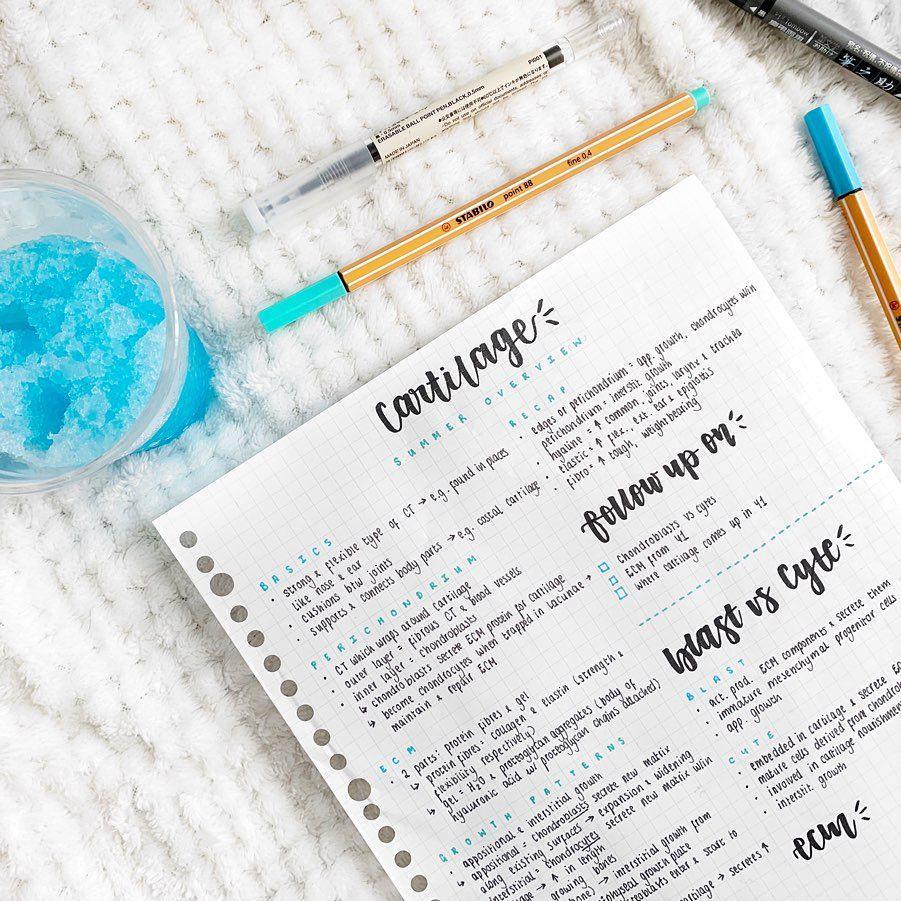 PI001
ERASABLE BALL POINT PEN, BLACK, 0.5mm
MADE IN JAPAN
STABILO point 88 fine 0,4
Cartilage
SUMMER OVERVIEW
BASICS
• strong & flexible type of CT → e.g. found in places
like nose & ear
• cushions btw joints
• supports & connects body parts → e.g. costal cartilage
PERICHONDRIUM
• CT which wraps around cartilage
• outer layer = fibrous CT & blood vessels
• inner layer = chondroblasts
↳ chondroblasts secrete ECM protein for cartilage
↳ become chondrocytes when trapped in lacunae →
maintain & repair ECM
ECM
• 2 parts: protein fibres & gel
↳ protein fibres - collagen & elastin (strength &
flexibility respectively)
↳ gel = H2O & proteoglycan aggregates (body of
hyaluronic acid w/ proteoglycan chains attached)
GROWTH PATTERNS
• appositional & interstitial growth
↳ appositional = chondroblasts secrete new matrix
along existing surfaces → expansion & widening
interstitial = chondrocytes secrete new matrix w/in
cartilage → ↑ in length
growing bones
bone) → interstitial growth from
growth plate
enter & start to
cartilage → secretes ↑
RECAP
• edges or perichondrium = app. growth, chondrocytes w/in
perichondrium = interstit. growth
• hyaline = ↑ common, joints, larynx & trachea
• elastic = ↑ flex., ext. ear & epiglottis
• fibro = ↑ tough, weightbearing
follow up on
chondroblasts vs cytes
ECM from y1
where cartilage comes up in y1
blast vs cyte
BLAST
• act. prod. ECM components & secrete them
• immature mesenchymal progenitor cells
• app. growth
CYTE
• embedded in cartilage & secrete
• mature cells derived from
• involved in cartilage nourishment
• interstit. growth
ecm